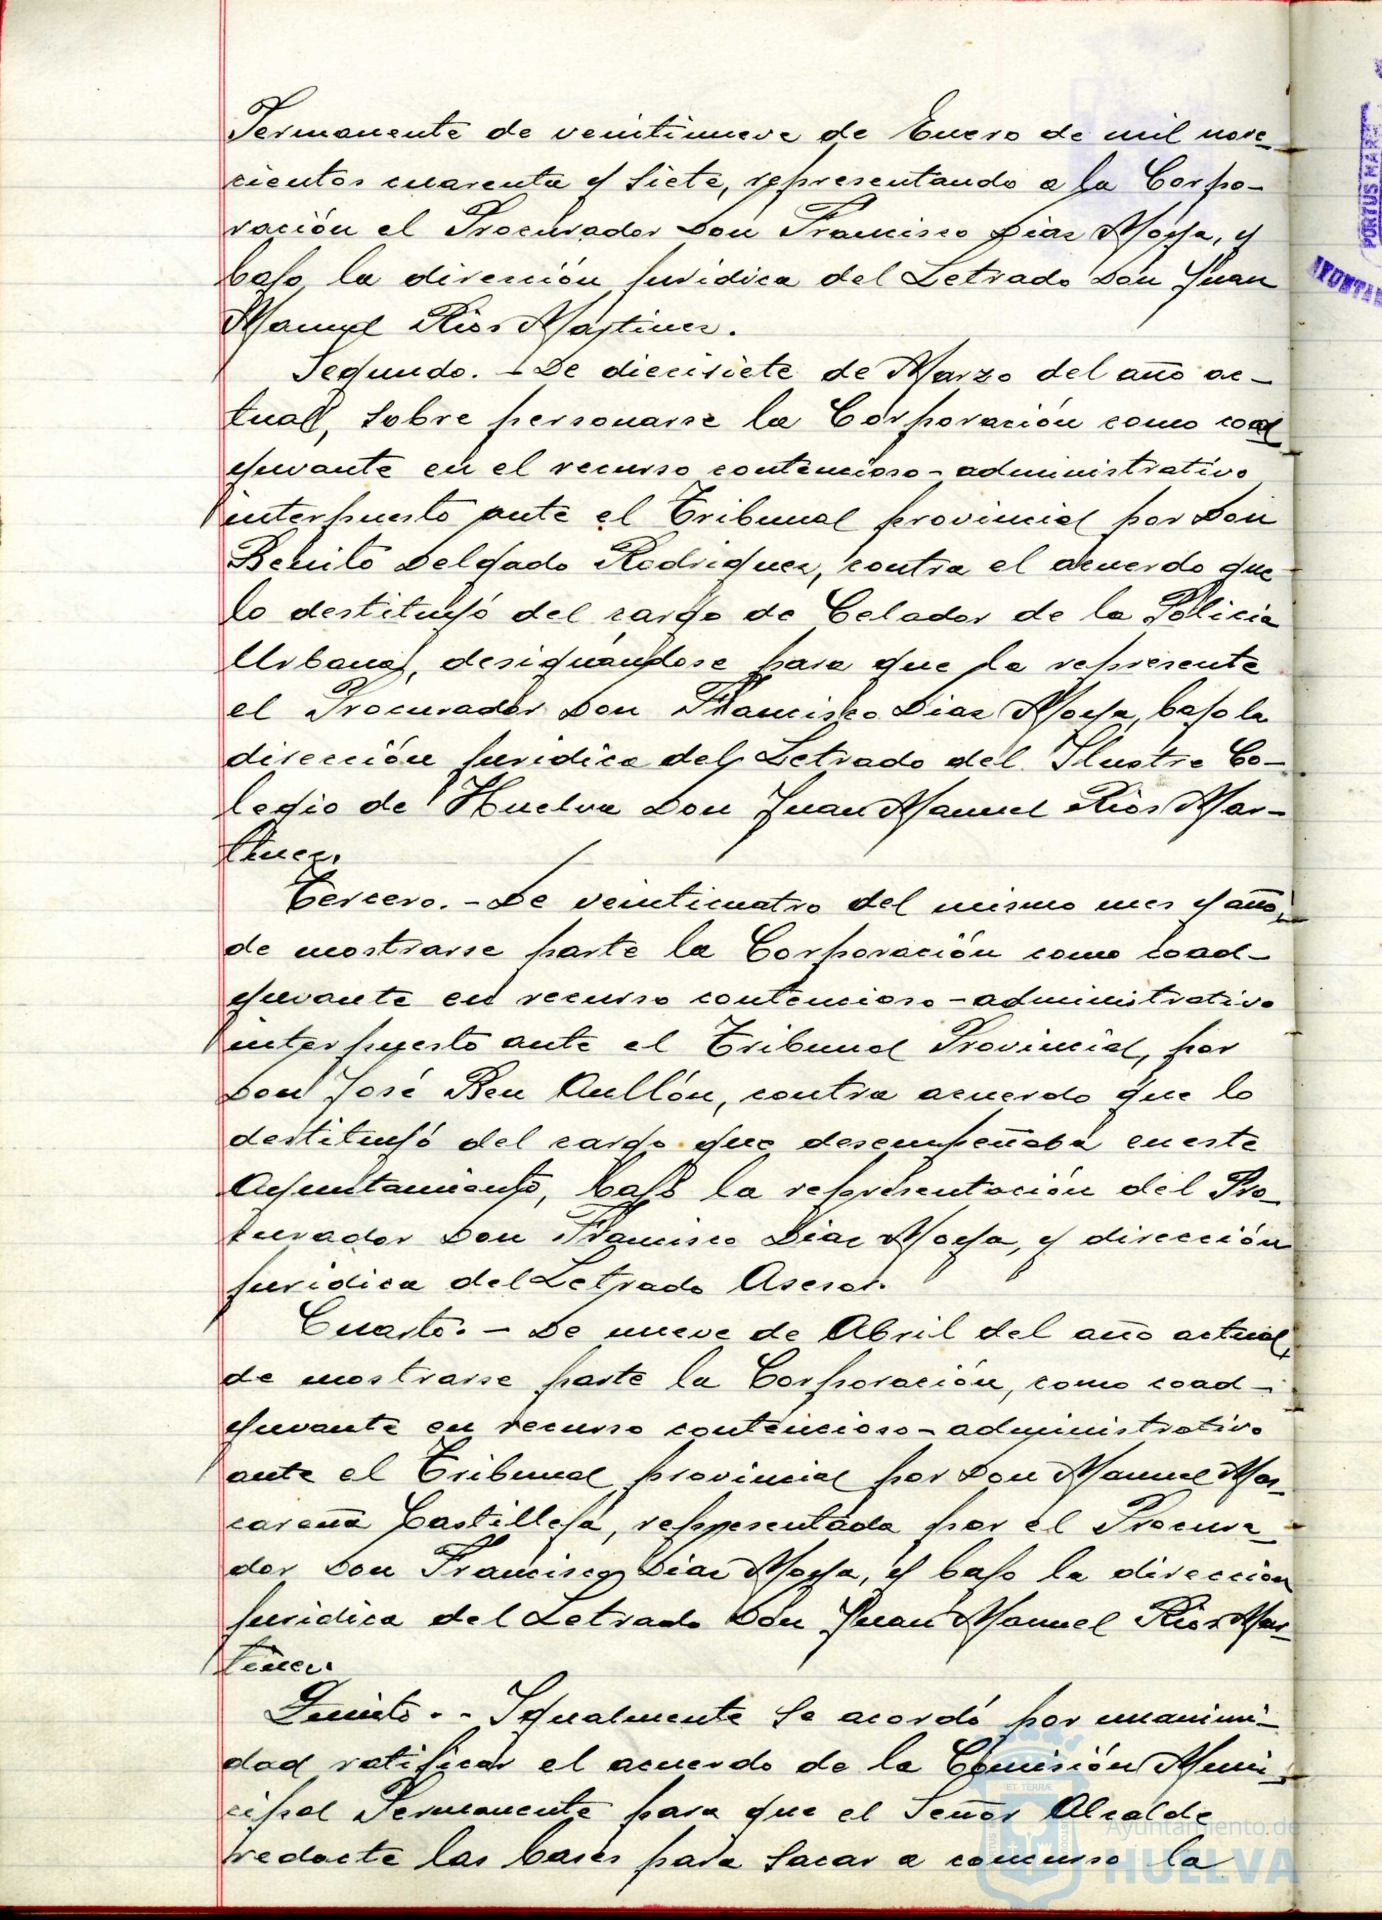 Permanente de veintinueve de Enero de mil nove-
cientos cuarenta y siete, representando a la Corpo-
ración el Procurador Don Francisco Diaz Moya, y
bajo la dirección juridica del Letrado Don Juan
Manuel Rios Martinez.
Segundo. - De diecisiete de Marzo del año ac-
tual, sobre personarse la Corporación como coad
yuvante en el recurso contencioso-administrativo
interpuesto ante el Tribunal provincial por Don
Benito Delgado Rodriguez, contra el acuerdo que
lo destituyó del cargo de Celador de la Policia
Urbana, designándose para que la represente
el Procurador Don Francisco Diaz Moya, bajo la
dirección juridica del Letrado del Ilustre Co-
legio de Huelva Don Juan Manuel Rios Mar-
tinez.
Tercero. - De veinticuatro del mismo mes y año,
de mostrarse parte la Corporación como coad-
yuvante en recurso contencioso-administrativo
interpuesto ante el Tribunal Provincial, por
Don José Rey Aullón, contra acuerdo que lo
destituyó del cargo que desempeñaba en este
Ayuntamiento, bajo la representación del Pro-
curador Don Francisco Diaz Moya, y dirección
juridica del Letrado Asesor.
Cuarto. - De nueve de Abril del año actual,
de mostrarse parte la Corporación, como coad-
yuvante en recurso contencioso-administrativo
ante el Tribunal provincial por Don Manuel Mas-
careña Castilleja, representada por el Procura-
dor Don Francisco Diaz Moya, y bajo la dirección
juridica del Letrado Don Juan Manuel Rios Mar-
tinez.
Quinto. - Igualmente se acordó por unanimi-
dad ratificar el acuerdo de la Comisión Muni-
cipal Permanente para que el Señor Alcalde
redacte las bases para sacar a concurso la
PORTUS MARI
AYUNTA
Ayuntamiento de
HUELVA